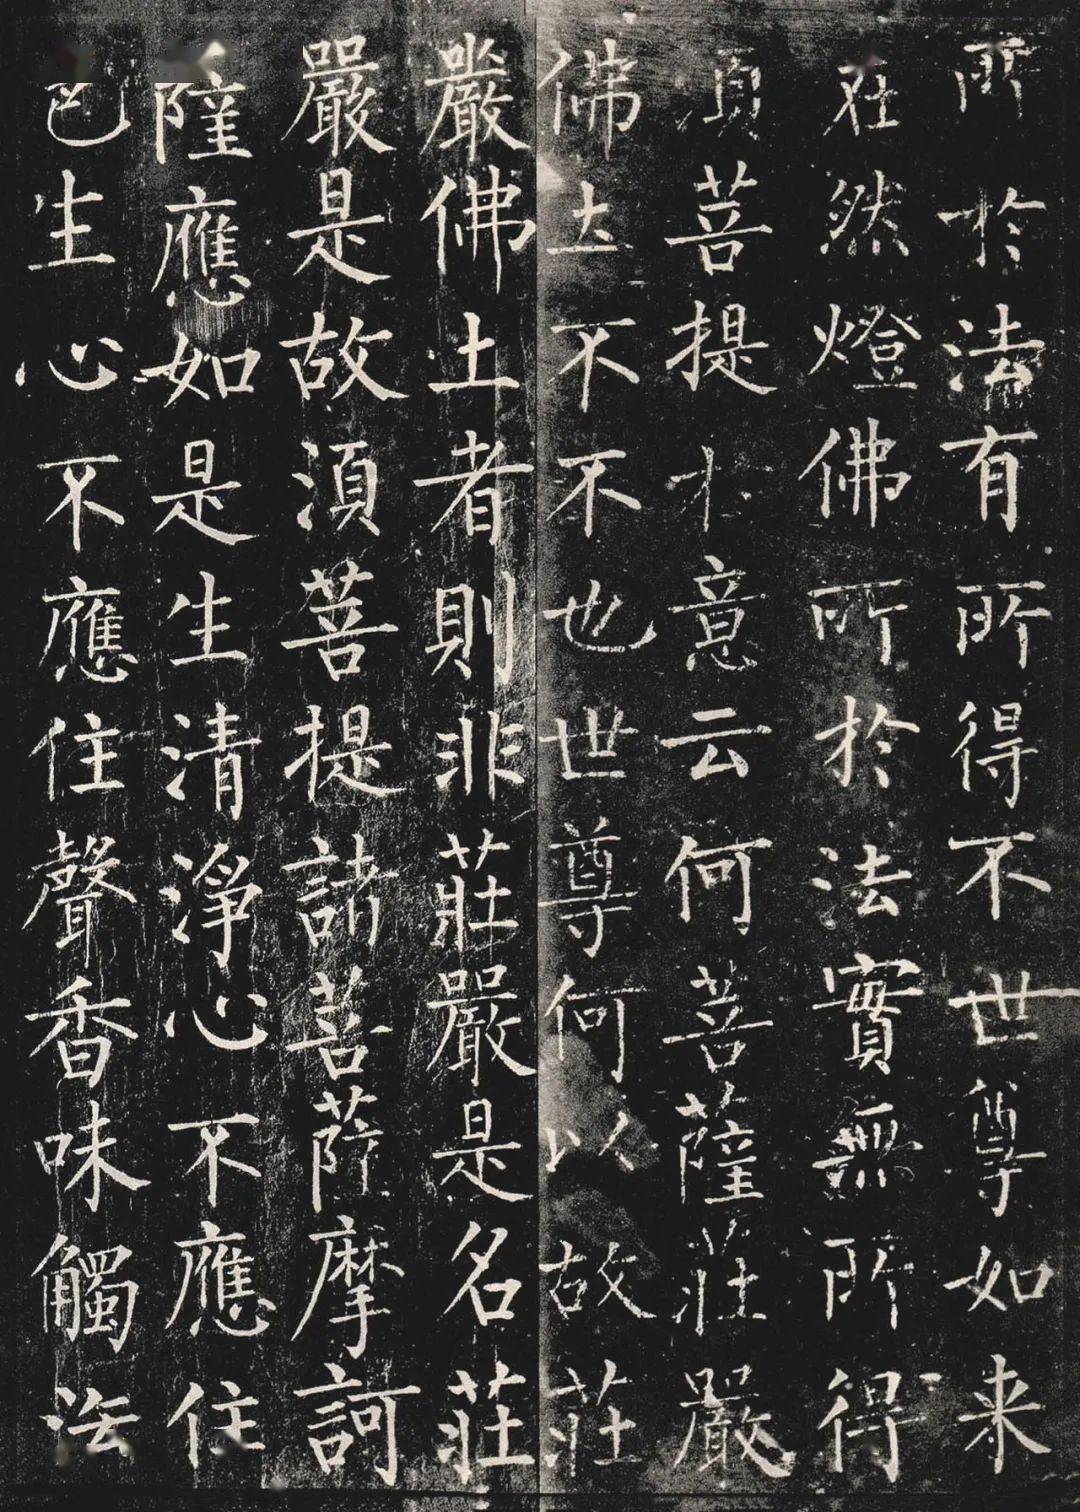 所於法有所得不世尊如来
在然燈佛所於法實無所得
須菩提於意云何菩薩莊嚴
佛土不不也世尊何以故莊
嚴佛土者則非莊嚴是名莊
嚴是故須菩提諸菩薩摩訶
薩應如是生清淨心不應住
色生心不應住聲香味觸法